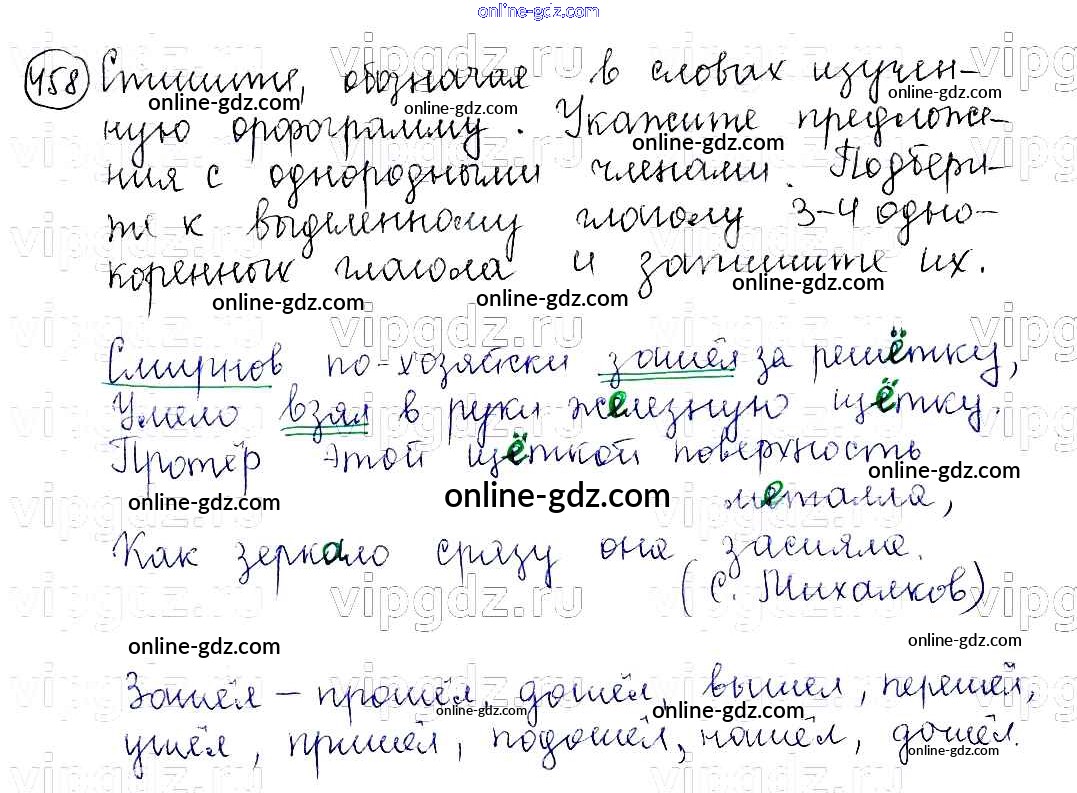 online-gdz.com
458 Спишите, обозначая в словах изучен-
ную орфограмму. Укажите предложе-
ния с однородными членами. Подбери-
те к выделенному глаголу 3-4 одно-
коренных глагола и запишите их.
Смирнов по-хозяйски зашёл за решётку,
Умело взял в руки железную щётку.
Протёр этой щёткой поверхность
металла,
Как зеркало сразу она засияла.
(С. Михалков)
Зашёл – прошёл, дошёл, вышел, перешёл,
ушёл, пришёл, подошёл, нашёл, дошёл.